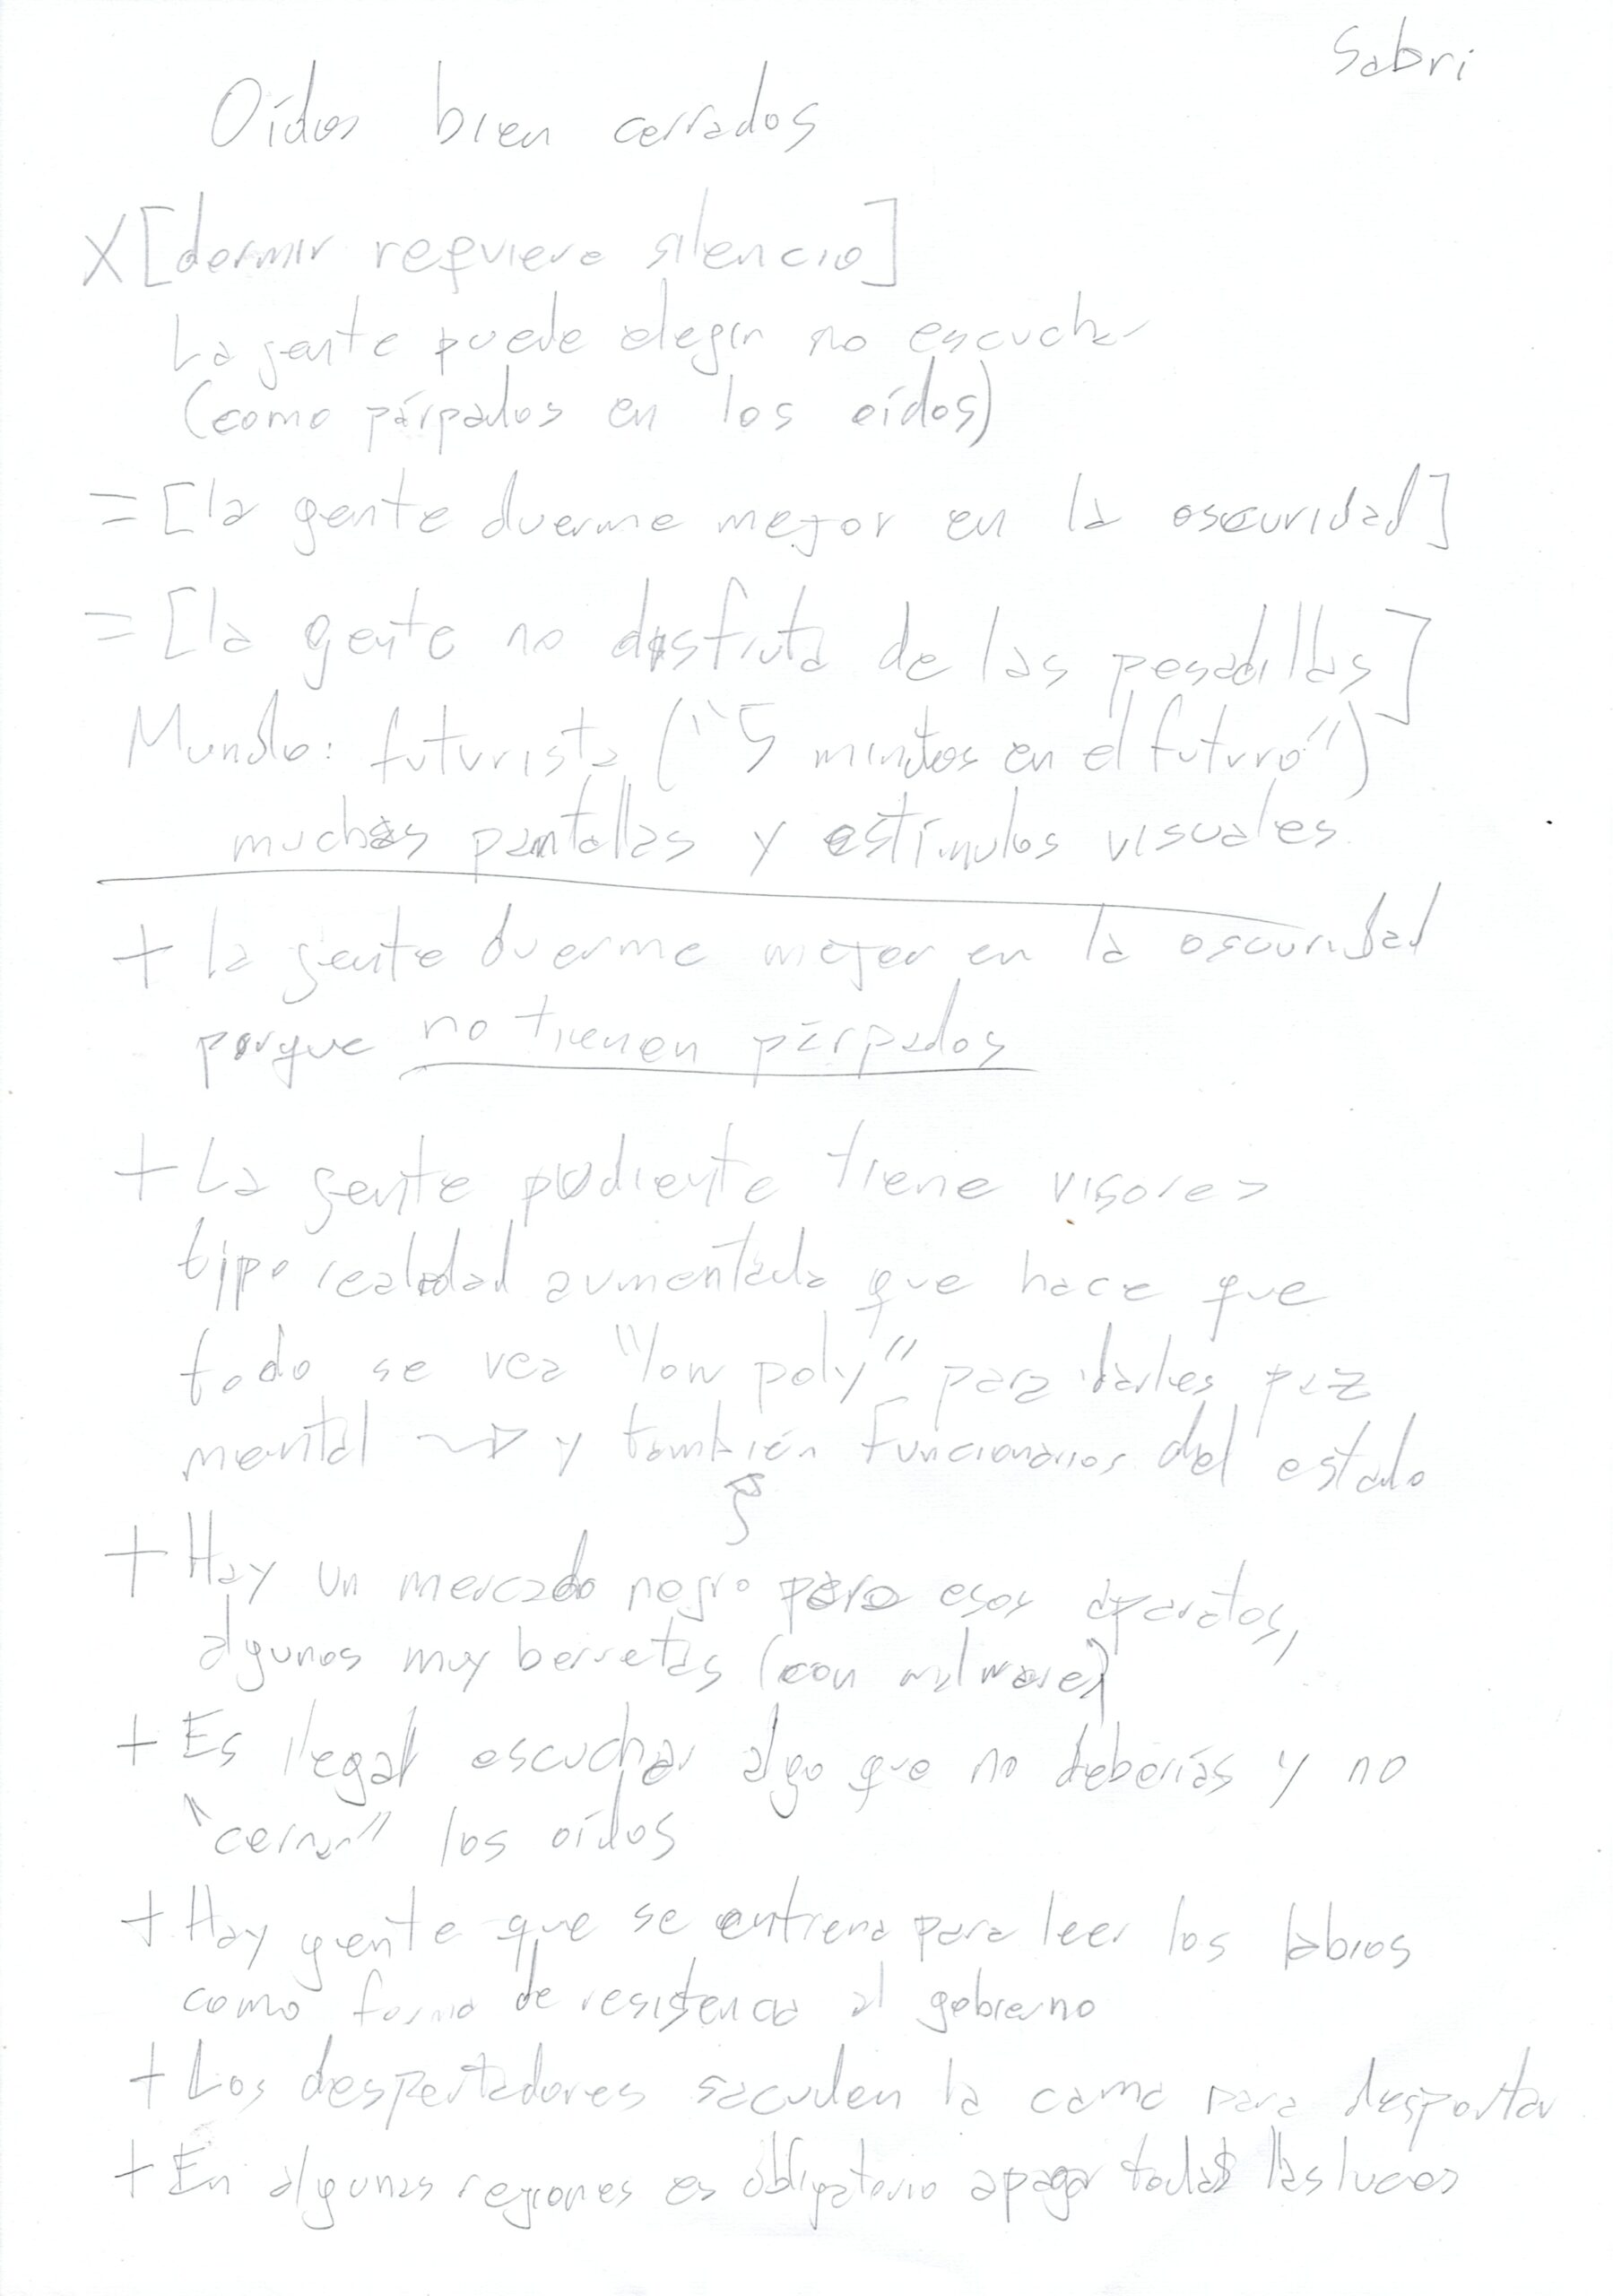 Sabri
Oídos bien cerrados
X [dormir requiere silencio]
La gente puede elegir no escuchar
(como párpados en los oídos)
= [la gente duerme mejor en la oscuridad]
= [la gente no disfruta de las pesadillas]
Mundo: futurista ("5 minutos en el futuro")
muchas pantallas y estímulos visuales.
+ la gente duerme mejor en la oscuridad
porque no tienen párpados
+ La gente pudiente tiene visores
tipo realidad aumentada que hace que
todo se vea "low poly" para darles paz
mental → y también funcionarios del estado
+ Hay un mercado negro para esos aparatos,
algunos muy berretas (con malware)
+ Es ilegal escuchar algo que no deberías y no
"cerrar" los oídos
+ Hay gente que se entrena para leer los labios
como forma de resistencia al gobierno
+ Los despertadores sacuden la cama para despertar
+ En algunas regiones es obligatorio apagar todas las luces